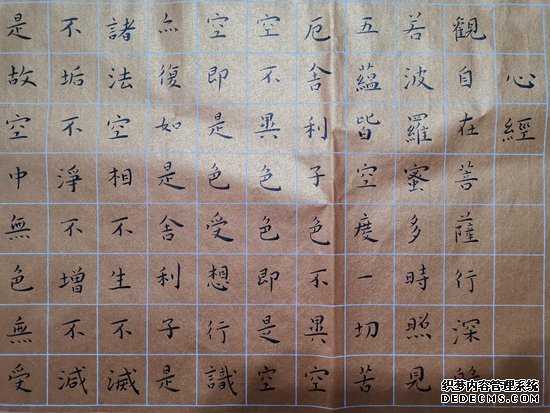 心經
觀自在菩薩行深般
若波羅蜜多時照見
五蘊皆空度一切苦
厄舍利子色不異空
空不異色色即是空
空即是色受想行識
亦復如是舍利子是
諸法空相不生不滅
不垢不淨不增不減
是故空中無色無受
织梦内容管理系统
DEDECMS.COM